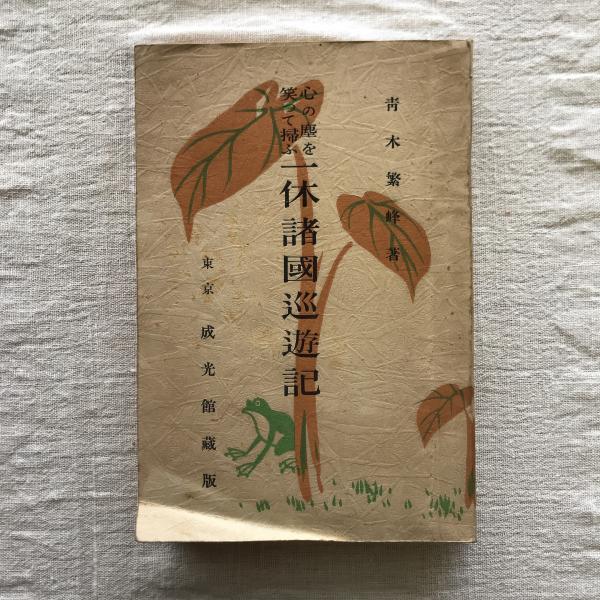 青木繁峰著
心の塵を
笑って掃ふ
一休諸國巡遊記
東京 成光館藏版